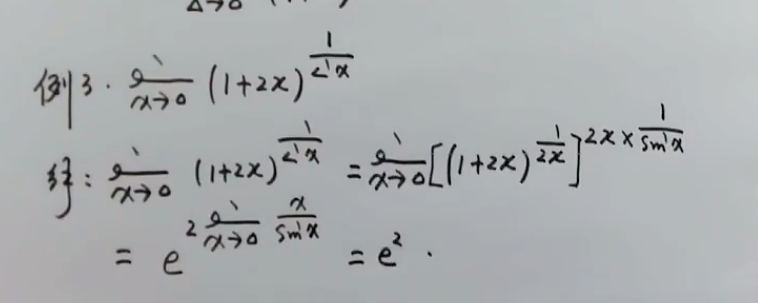 Δ→0 (1
例3. lim x→0 (1+2x)^(1/sin x)
解: lim x→0 (1+2x)^(1/sin x) = lim x→0 [(1+2x)^(1/2x)]^(2x × 1/sin x)
= e^(2 lim x→0 x/sin x) = e^2 .